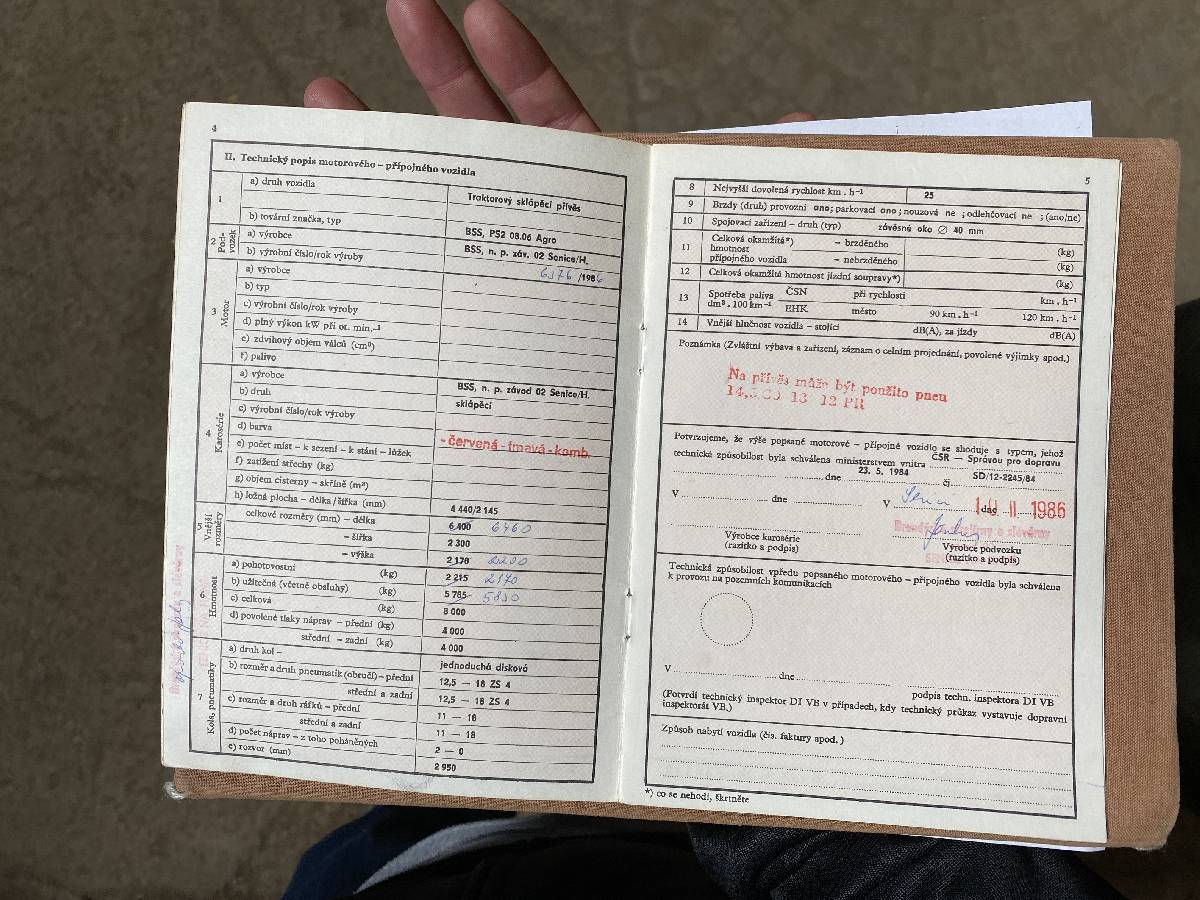 4
II. Technický popis motorového – přípojného vozidla
1
a) druh vozidla
Traktorový sklápěcí přívěs
b) tovární značka, typ
BSS, PS2 08.06 Agro
2
Pod-
vozek
a) výrobce
BSS, n. p. záv. 02 Senice/H.
b) výrobní číslo/rok výroby
6376 /1986
3
Motor
a) výrobce
b) typ
c) výrobní číslo/rok výroby
d) plný výkon kW při ot. min.⁻¹
e) zdvihový objem válců (cm³)
f) palivo
4
Karosérie
a) výrobce
BSS, n. p. závod 02 Senice/H.
b) druh
sklápěcí
c) výrobní číslo/rok výroby
d) barva
- červená - tmavá - komb.
e) počet míst – k sezení – k stání – lůžek
f) zatížení střechy (kg)
g) objem cisterny – skříně (m³)
h) ložná plocha – délka/šířka (mm)
4 440/2 145
5
Vnější
rozměry
celkové rozměry (mm) – délka
6.400 6460
– šířka
2 300
– výška
2 170 2200
6
Hmotnost
a) pohotovostní (kg)
2 215 2170
b) užitečná (včetně obsluhy) (kg)
5 785 5830
c) celková (kg)
8 000
d) povolené tlaky náprav – přední (kg)
4 000
střední – zadní (kg)
4 000
7
Kola, pneumatiky
a) druh kol –
jednoduchá disková
b) rozměr a druh pneumatik (obručí) – přední
12,5 — 18 ZS 4
střední a zadní
12,5 — 18 ZS 4
c) rozměr a druh ráfků – přední
11 — 18
střední a zadní
11 — 18
d) počet náprav – z toho poháněných
2 — 0
e) rozvor (mm)
2 950
5
8 Nejvyšší dovolená rychlost km . h⁻¹ 25
9 Brzdy (druh) provozní ano; parkovací ano; nouzová ne ; odlehčovací ne ; (ano/ne)
10 Spojovací zařízení – druh (typ) závěsné oko ∅ 40 mm
11 Celková okamžitá*) – brzděného (kg)
hmotnost
přípojného vozidla – nebrzděného (kg)
12 Celková okamžitá hmotnost jízdní soupravy*) (kg)
13 Spotřeba paliva ČSN při rychlosti km . h⁻¹
dm³ . 100 km⁻¹ EHK město 90 km . h⁻¹ 120 km . h⁻¹
14 Vnější hlučnost vozidla – stojící dB(A), za jízdy dB(A)
Poznámka (Zvláštní výbava a zařízení, záznam o celním projednání, povolené výjimky apod.)
Na přívěs může být použito pneu
18 12 PR
Potvrzujeme, že výše popsané motorové – přípojné vozidlo se shoduje s typem, jehož
technická způsobilost byla schválena ministerstvem vnitra ČSR — Správou pro dopravu
dne 23. 5. 1984 čj. SD/12-2245/84
V dne V dne II 1986
Výrobce karosérie
(razítko a podpis)
Výrobce podvozku
(razítko a podpis)
Technická způsobilost vpředu popsaného motorového – přípojného vozidla byla schválena
k provozu na pozemních komunikacích
V dne
podpis techn. inspektora DI VB
(Potvrdí technický inspektor DI VB v případech, kdy technický průkaz vystavuje dopravní
inspektorát VB.)
Způsob nabytí vozidla (čís. faktury apod.)
*) co se nehodí, škrtněte